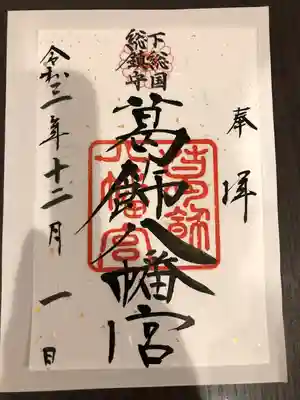 奉拝
下総国
総鎮守
葛飾八幡宮
令和三年十二月一日